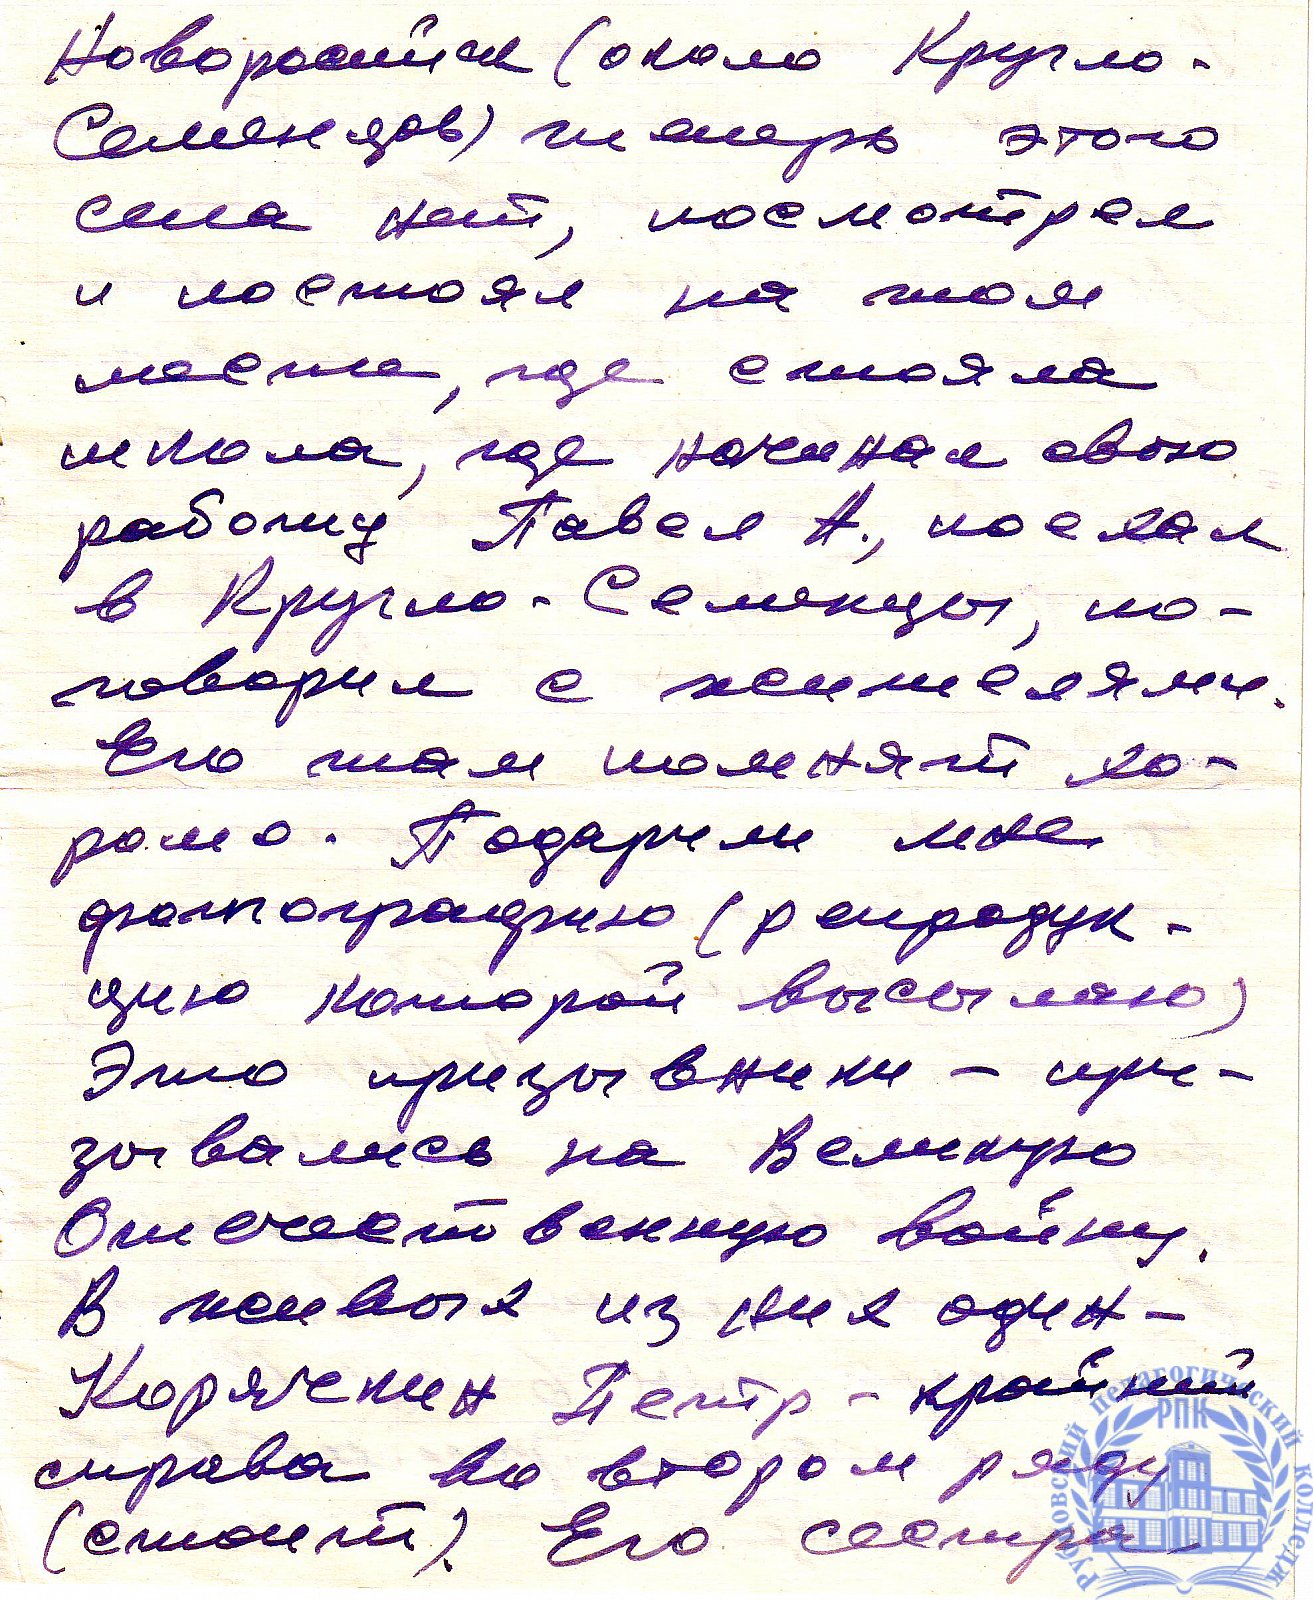 Новоросийск (около Кругло-
Семенцов) теперь этого
села нет, посмотрел
и постоял на том
месте, где стояла
школа, где начинал свою
работу Павел А., поехал
в Кругло-Семенцы, по-
говорил с жителями.
Его там помнят хо-
рошо. Подарили мне
фотографию (репродук-
цию которой высылаю)
Это призывники – при-
зывались на Великую
Отечественную войну.
В живых из них один –
Корячкин Петр – крайний
справа во втором ряду
(стоит). Его сестра
Рубцовский педагогический колледж
РПК